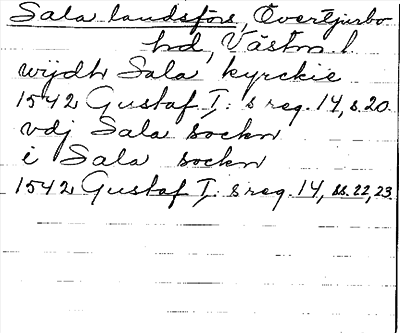 Sala landsförs, Övertjurbo
hd, Västm. l.
wijdh Sala kyrckie
1542 Gustaf I:s reg. 14, s. 20.
vdj Sala sockn
i Sala sockn
1542 Gustaf I:s reg. 14, ss. 22, 23.